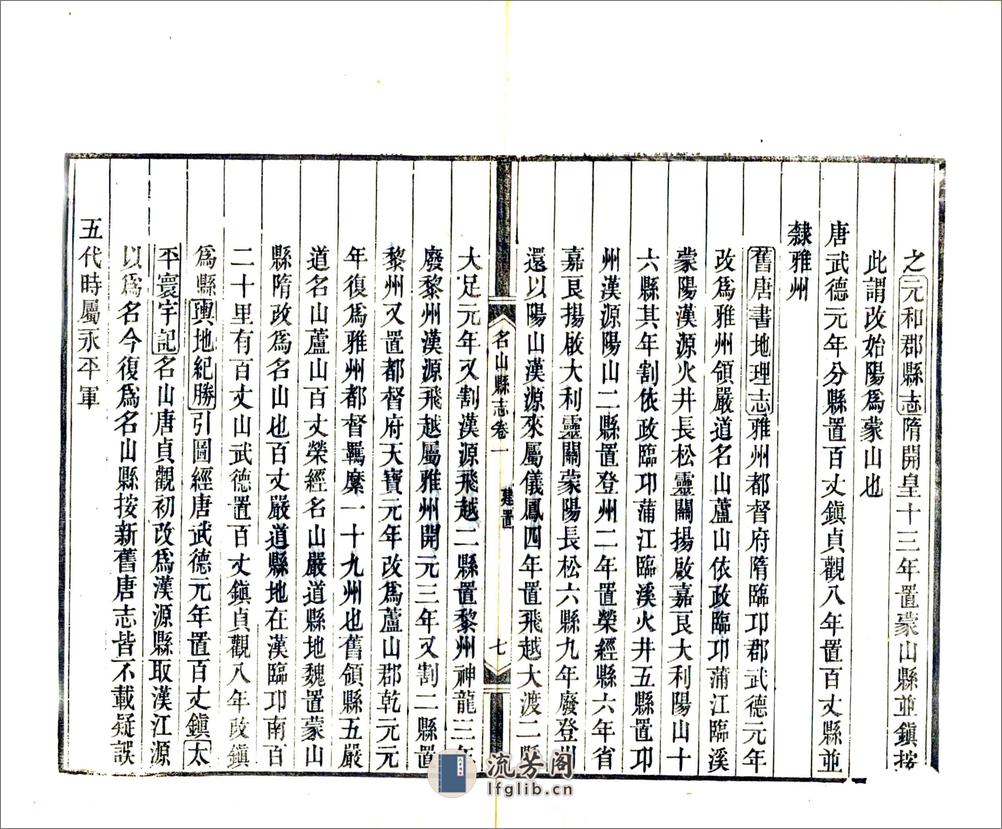 之元和郡縣志隋開皇十三年置蒙山縣並鎮按
此謂改始陽爲蒙山也
唐武德元年分縣置百丈鎮貞觀八年置百丈縣並
隸雅州
舊唐書地理志雅州都督府隋臨卭郡武德元年
改爲雅州領嚴道名山蘆山依政臨卭蒲江臨溪
蒙陽漢源火井長松靈關揚啟嘉良大利陽山十
六縣其年割依政臨卭蒲江臨溪火井五縣置卭
州漢源陽山二縣置登州二年置榮經縣六年省
嘉良揚啟大利靈關蒙陽長松六縣九年廢登州
還以陽山漢源來屬儀鳳四年置飛越大渡二縣
名山縣志卷一
建置
七
大足元年又割漢源飛越二縣置黎州神龍三年
廢黎州漢源飛越屬雅州開元三年又割二縣置
黎州又置都督府天寶元年改爲蘆山郡乾元元
年復爲雅州都督羈縻一十九州也舊領縣五嚴
道名山蘆山百丈榮經名山嚴道縣地魏置蒙山
縣隋改爲名山也百丈嚴道縣地在漢臨卭南百
二十里有百丈山武德置百丈鎮貞觀八年改鎮
爲縣輿地紀勝引圖經唐武德元年置百丈鎮太
平寰宇記名山唐貞觀初改爲漢源縣取漢江源
以爲名今復爲名山縣按新舊唐志皆不載疑誤
五代時屬永平軍
流芳阁
lfglib.cn